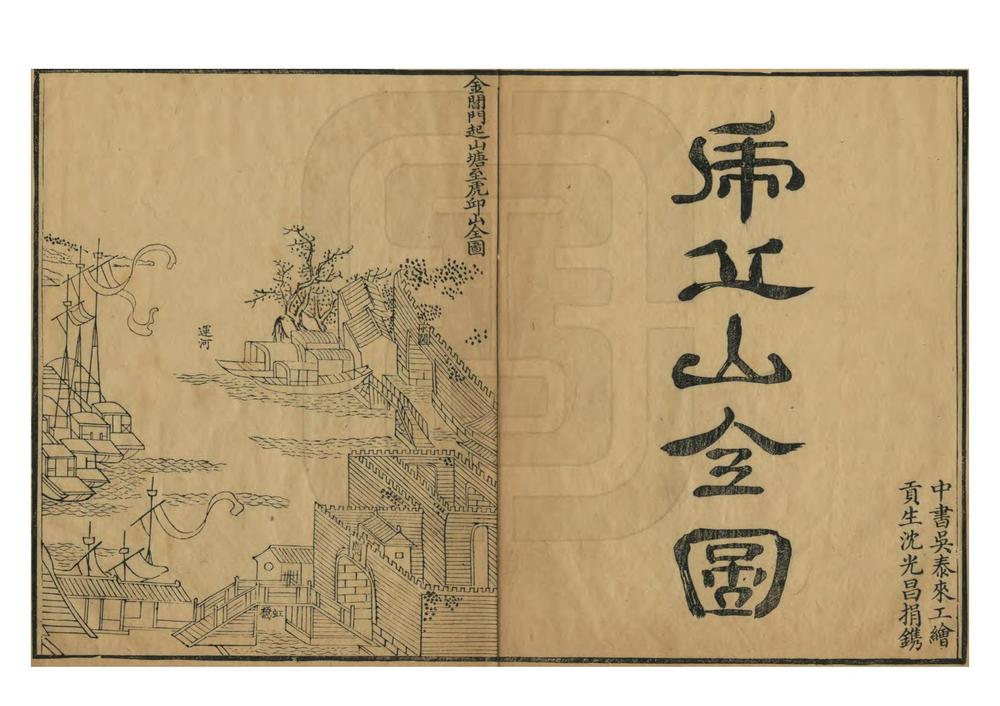 虎丘山全圖
中書吳泰來工繪
貢生沈光昌捐鐫
金閶門起山塘至虎邱山全圖
運河
虹橋